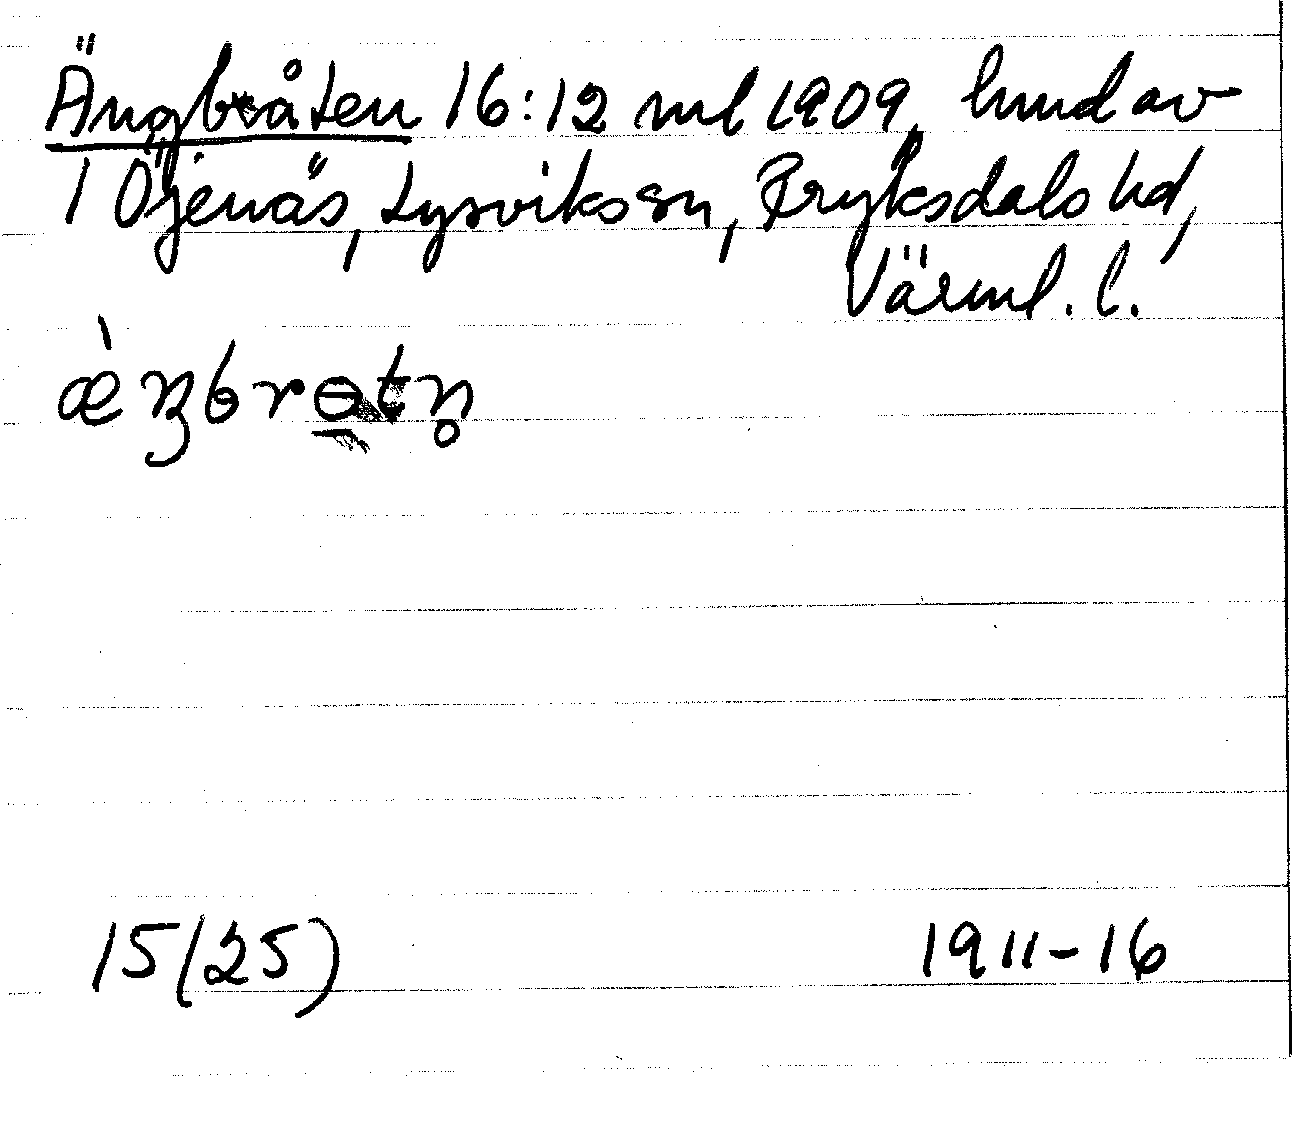 Ängbråten 16:12 ml 1909, hmd av
1 Öjenäs, Lysviks sn, Fryksdals hd,
Värml. l.
æ̀ŋbrɵ̱tn̥
15(25) 1911-16